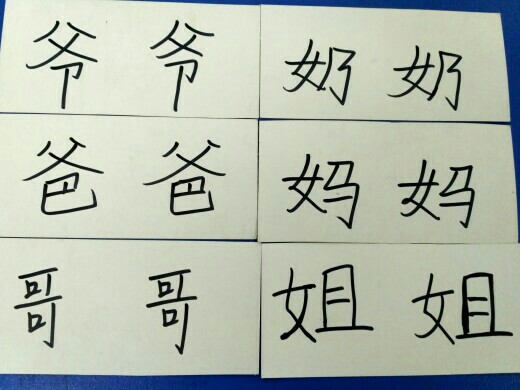 爷爷 奶奶
爸爸 妈妈
哥哥 姐姐